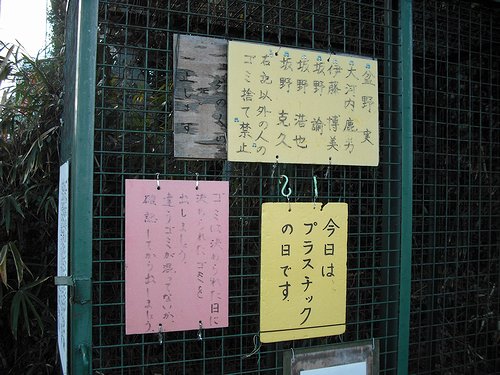 盆野 実
大河内 鹿男
伊藤 博美
坂野 諭
坂野 浩也
坂野 克久
右記以外の人の
ゴミ捨て禁止
今日は
プラスチック
の日です
ゴミは決められた日に
決められたゴミを
出しましょう。
違うゴミが混ってないか、
確認してから出しましょう。